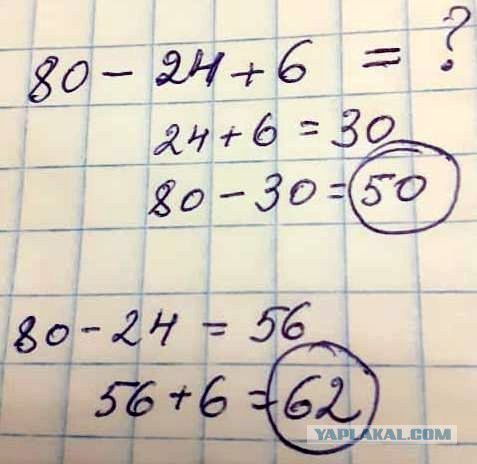 80 - 24 + 6 = ?
24 + 6 = 30
80 - 30 = 50
80 - 24 = 56
56 + 6 = 62
YAPLAKAL.COM